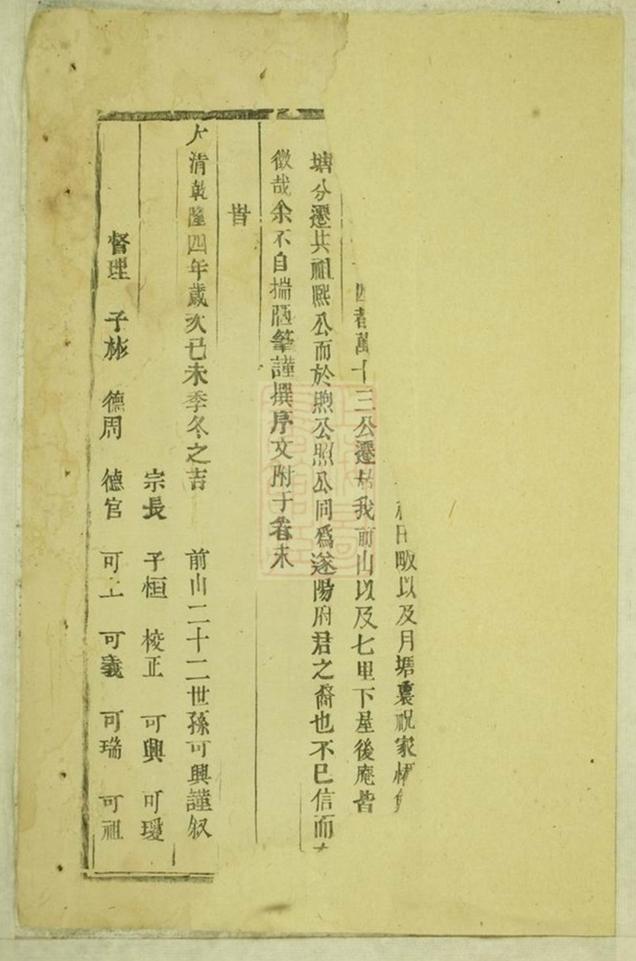 田畈以及月塘裏祝家
四者萬十三公遷居我前山以及七里下屋後庵皆
塘分遷共祖熙公而於煦公照公同爲遂陽府君之裔也不已信而
徵哉余不自揣陋筆謹撰序文附于卷末
旹
大清乾隆四年歲次己未季冬之吉 前山二十二世孫可興謹叙
宗長 子恒 校正 可興 可瓊
督理 子彬 德周 德官 可上 可義 可瑞 可祖